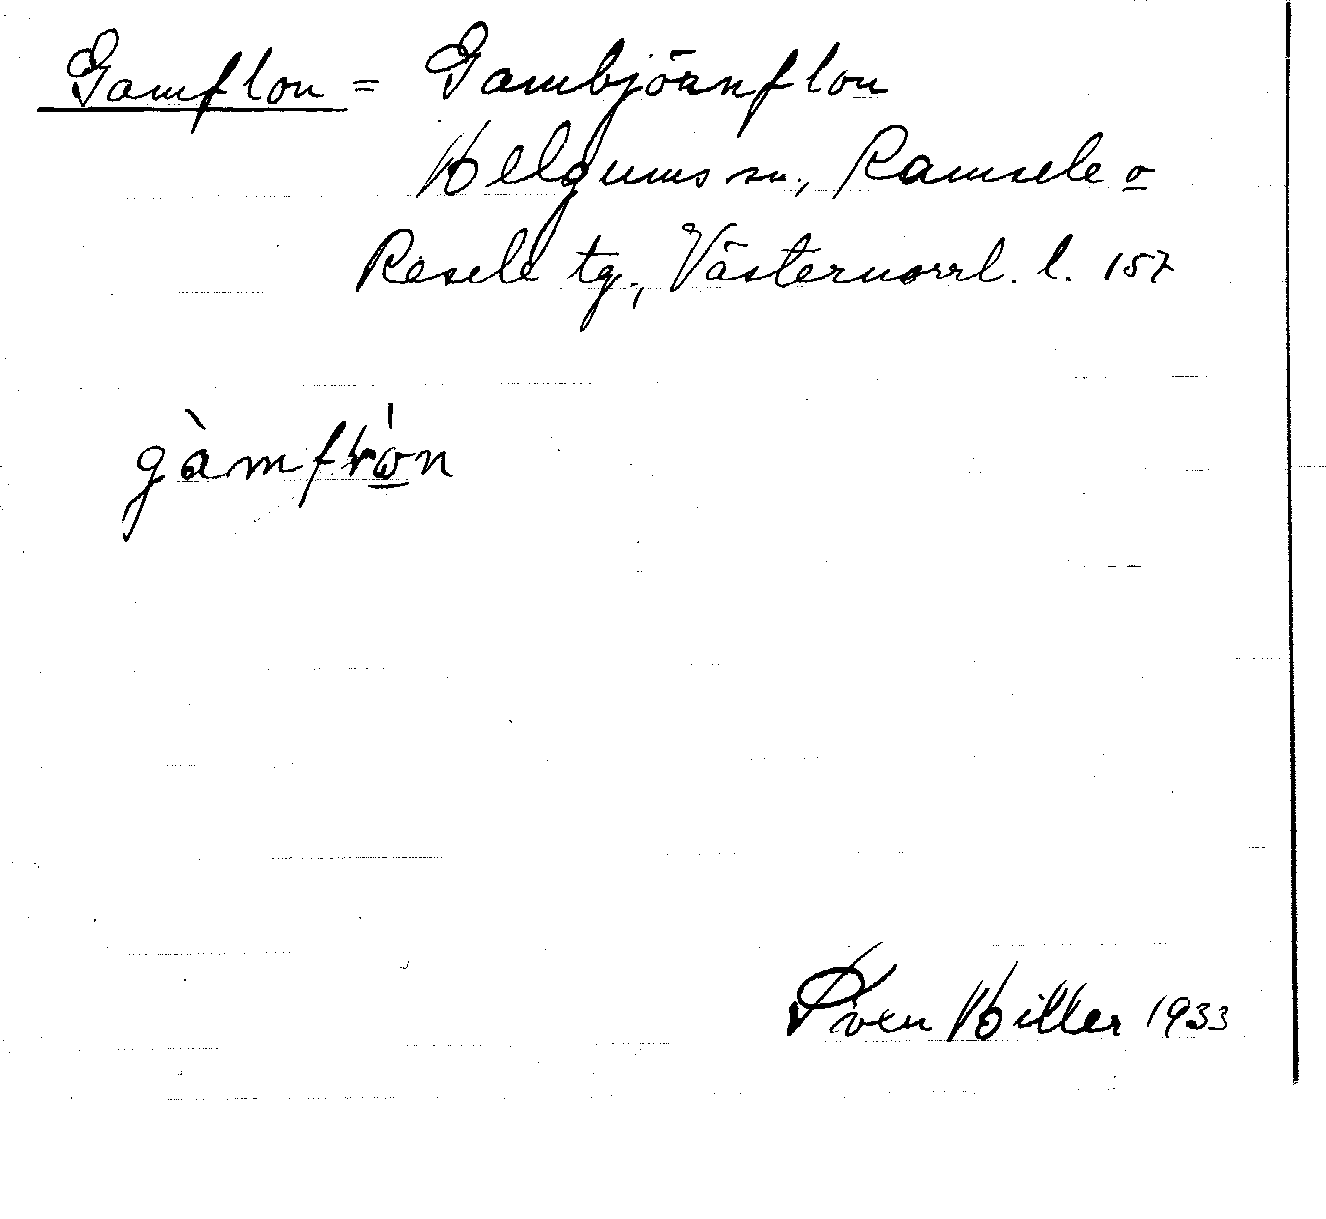 Gamflon = Gambjörnflon
Helgums sn., Ramsele o
Resele tg., Västernorrl. l. 157
gàmflo̲n
Sven Hiller 1933